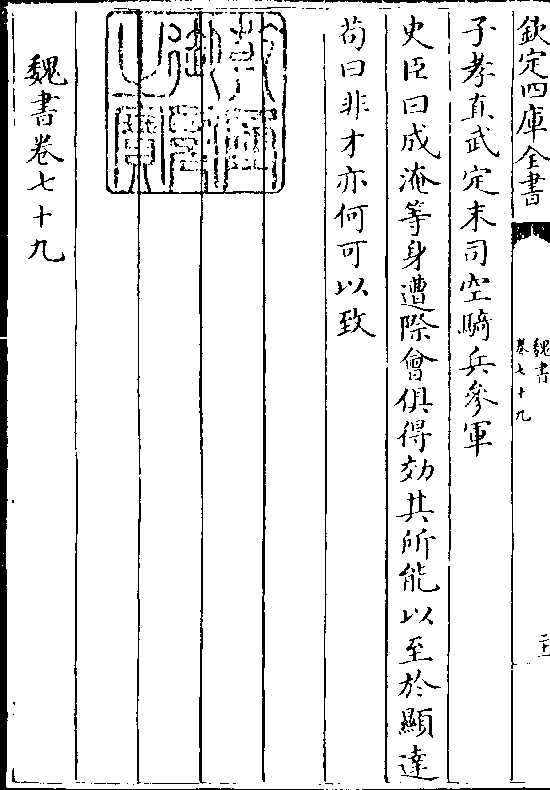 欽定四庫全書
魏書
卷七十九
子孝直武定末司空騎兵參軍
史臣曰成淹等身遭際會俱得効其所能以至於顯達
苟曰非才亦何可以致
乾隆御覽之寶
魏書卷七十九